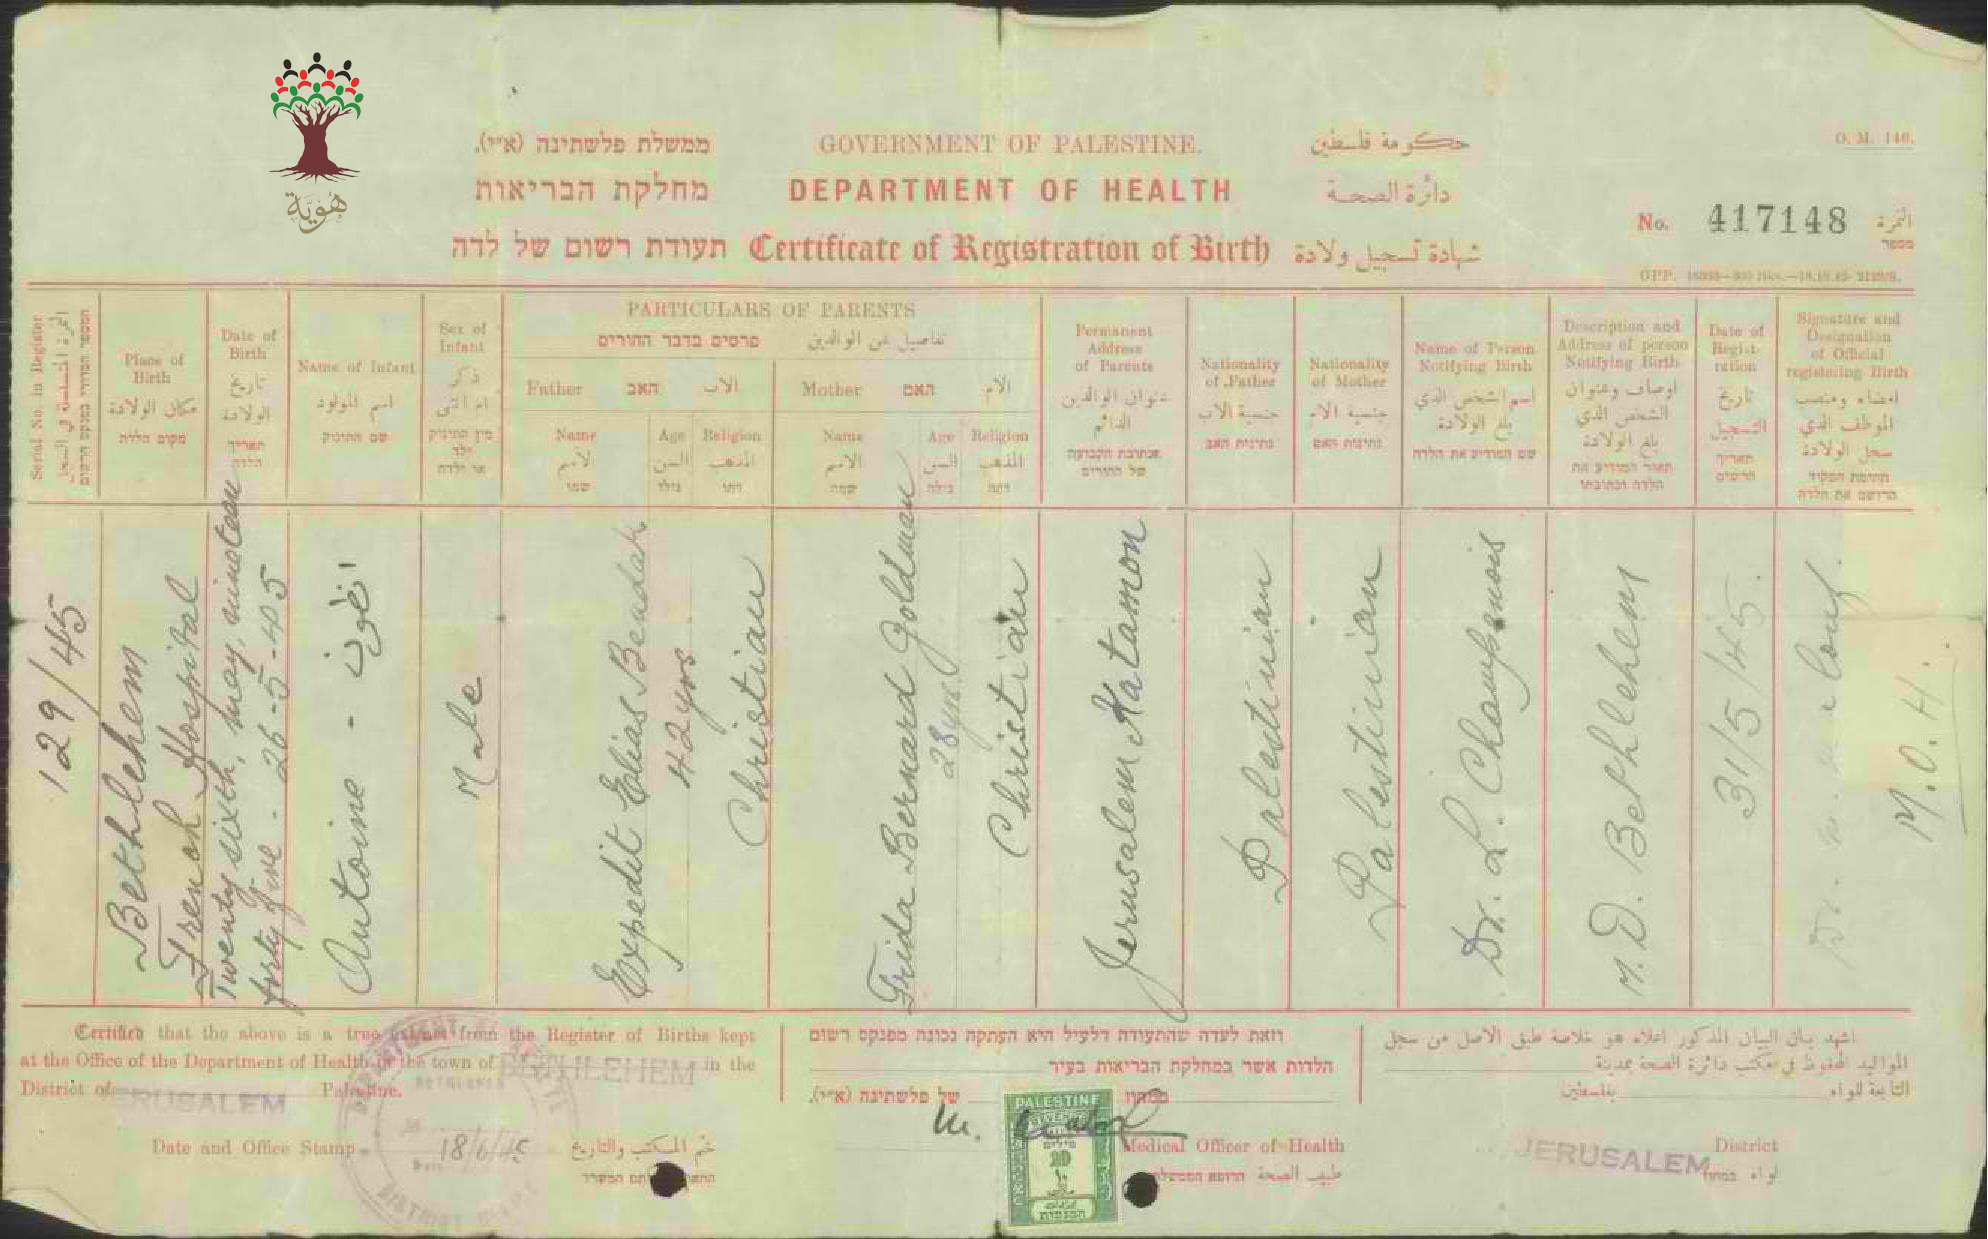 هُوِيَّة
ממשלת פלשתינה (א״י).
GOVERNMENT OF PALESTINE.
حكومة فلسطين
O. M. 146.
מחלקת הבריאות
DEPARTMENT OF HEALTH
دائرة الصحة
No. 417148 النمرة
מספר
תעודת רשום של לדה
Certificate of Registration of Birth
شهادة تسجيل ولادة
Serial No. in Register
النمرة المتسلسلة في السجل
Place of Birth
مكان الولادة
מקום הלדה
Date of Birth
تاريخ الولادة
תאריך הלדה
Name of Infant
اسم المولود
שם התינוק
Sex of Infant
ذكر ام انثى
מין התינוק
ילד או ילדה
PARTICULARS OF PARENTS
פרטים בדבר ההורים
تفاصيل عن الوالدين
Father האב الاب
Name الاسم שמו
Age السن גילו
Religion المذهب דתו
Mother האם الام
Name الاسم שמה
Age السن גילה
Religion المذهب דתה
Permanent Address of Parents
عنوان الوالدين الدائم
כתובת הקבועה של ההורים
Nationality of Father
جنسية الاب
נתינות האב
Nationality of Mother
جنسية الام
נתינות האם
Name of Person Notifying Birth
اسم الشخص الذي بلغ الولادة
שם המודיע את הלדה
Description and Address of person Notifying Birth
اوصاف وعنوان الشخص الذي بلغ الولادة
תאור המודיע את הלדה וכתובתו
Date of Registration
تاريخ التسجيل
תאריך הרשום
Signature and Designation of Official registering Birth
امضاء ومنصب الموظف الذي سجل الولادة
חתימת הפקיד הרושם את הלדה
129/45
Bethlehem
French Hospital
Twenty sixth, may, nineteen
forty five - 26-5-45
Antoine - انطون
Male
Expedit Elias Bendak
42 yrs
Christian
Frida Bernard Goldman
28 yrs.
Christian
Jerusalem Katamon
Palestinian
Palestinian
Dr. L. Choupanois
M. D. Bethlehem
31/5/45.
Dr.
M. O. H.
Certified that the above is a true extract from the Register of Births kept
at the Office of the Department of Health in the town of BETHLEHEM in the
District of JERUSALEM Palestine.
Date and Office Stamp 18/6/45 ختم المكتب والتاريخ
וזאת לעדה שהתעודה דלעיל היא העתקה נכונה מפנקס רשום
הלדות אשר במחלקת הבריאות בעיר
במחוז של פלשתינה (א״י).
PALESTINE
Medical Officer of Health
طبيب الصحة הרופא הממשלתי
اشهد بان البيان المذكور اعلاه هو خلاصة طبق الاصل من سجل
المواليد المحفوظ في مكتب دائرة الصحة بمدينة
التابعة للواء بفلسطين
JERUSALEM District
لواء במחוז